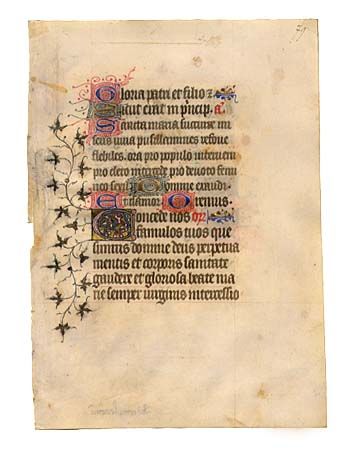 79
Gloria patri et filio &
Sicut erat in princip. a.
Sancta maria succurre mi
seris iuua pusillanimes refoue
flebiles. ora pro populo interueni
pro clero intercede pro deuoto femi
neo sexu. Domine exaudi.
Et clamor. Oremus.
Concede nos or
famulos tuos que
sumus domine deus perpetua
mentis et corporis sanitate
gaudere et gloriosa beate ma
rie semper uirginis intercessio